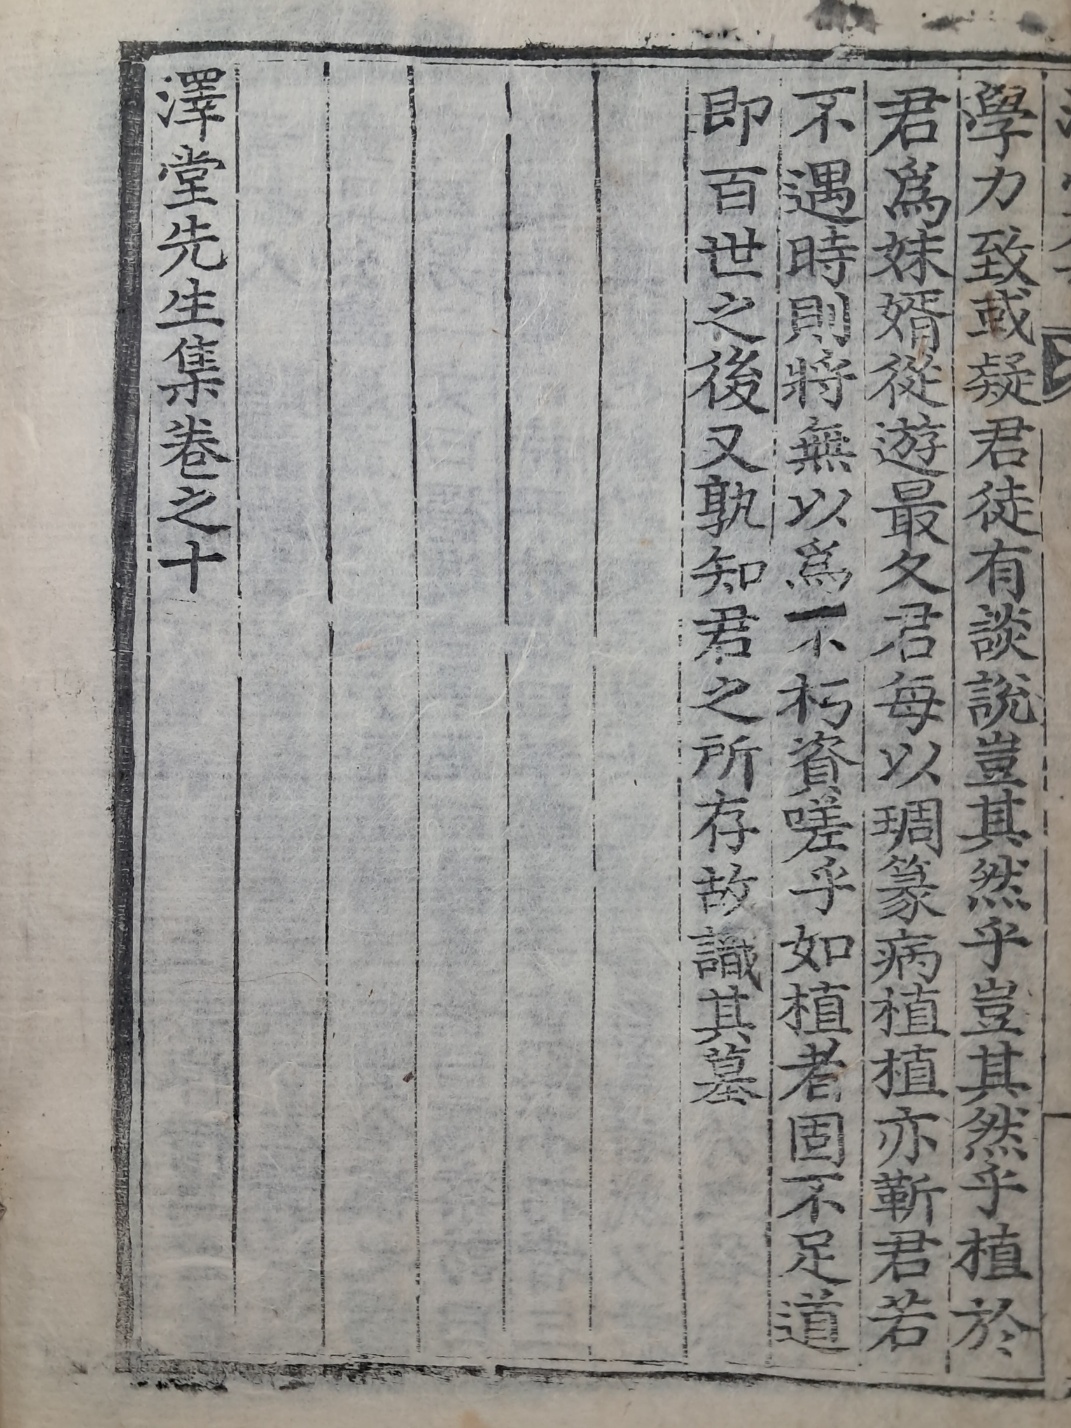 學力致或疑君徒有談說豈其然乎豈其然乎植於
君爲妹婿從遊最久君每以琱篆病植植亦靳君若
不遇時則將無以爲不朽資嗟乎如植者固不足道
即百世之後又孰知君之所存故識其墓
澤堂先生集卷之十